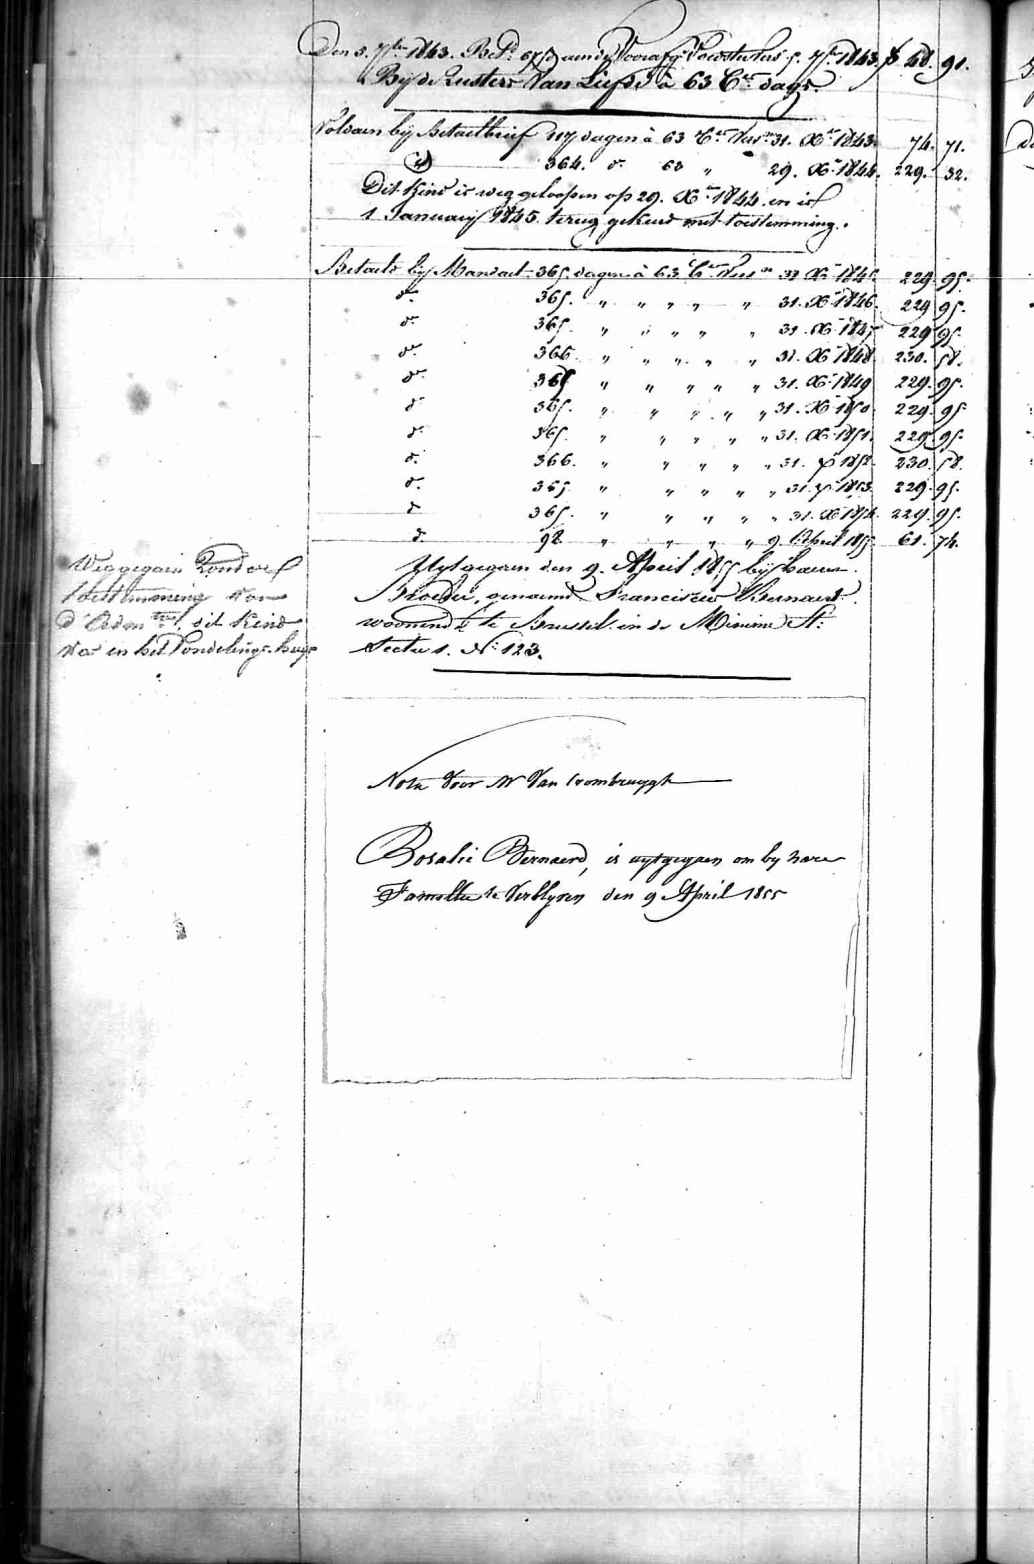 Den 5. 7ber 1843. Betd aen de Voorafge Voedsters 5. 7br 1843. f 48. 91.
By de Zusters Van Liefde à 63 Cen daegs.
Voldaen bij betaelbrief 117 dagen à 63 Cen 31. Xbr 1843. 74. 71.
id 364. do 63 " 29. Xbr 1844. 229. 32.
Dit Kind is weg geloopen op 29. Xbr 1844. en is
1. January 1845. terug gekeerd met toestemming.
Betaelt bij Mandaet 365. dagen à 63 Cen 31 Xbr 1845. 229. 95.
do 365. " " " " " 31. Xbr 1846. 229 95.
do 365. " " " " " 31. Xbr 1847 229 95.
do 366. " " " " " 31. Xbr 1848. 230. 58.
do 365 " " " " " 31. Xbr 1849 229. 95.
do 365. " " " " " 31. Xbr 1850. 229. 95
do 365. " " " " " 31. Xbr 1851. 229. 95.
do 366. " " " " " 31. Xbr 1852. 230. 58.
do 365. " " " " " 31. Xbr 1853. 229. 95.
do 365. " " " " " 31. Xbr 1854. 229. 95.
do 98 " " " " " 9. April 1855. 61. 74.
Weggegaen Zonder
toestemming van
d'Adm tie, dit Kind
was in het Vondelings-huys
Uytgegaen den 9. April 1855 bij haeren
Broeder, genaemd Franciscus Bernaerd.
woonende te Brussel in de Minime St:
Sectie 1. No 123.
Nota Voor Mr Van Crombrugghe
Rosalie Bernaerd, is uytgegaen om by hare
Familie te Verblyven den 9 April 1855